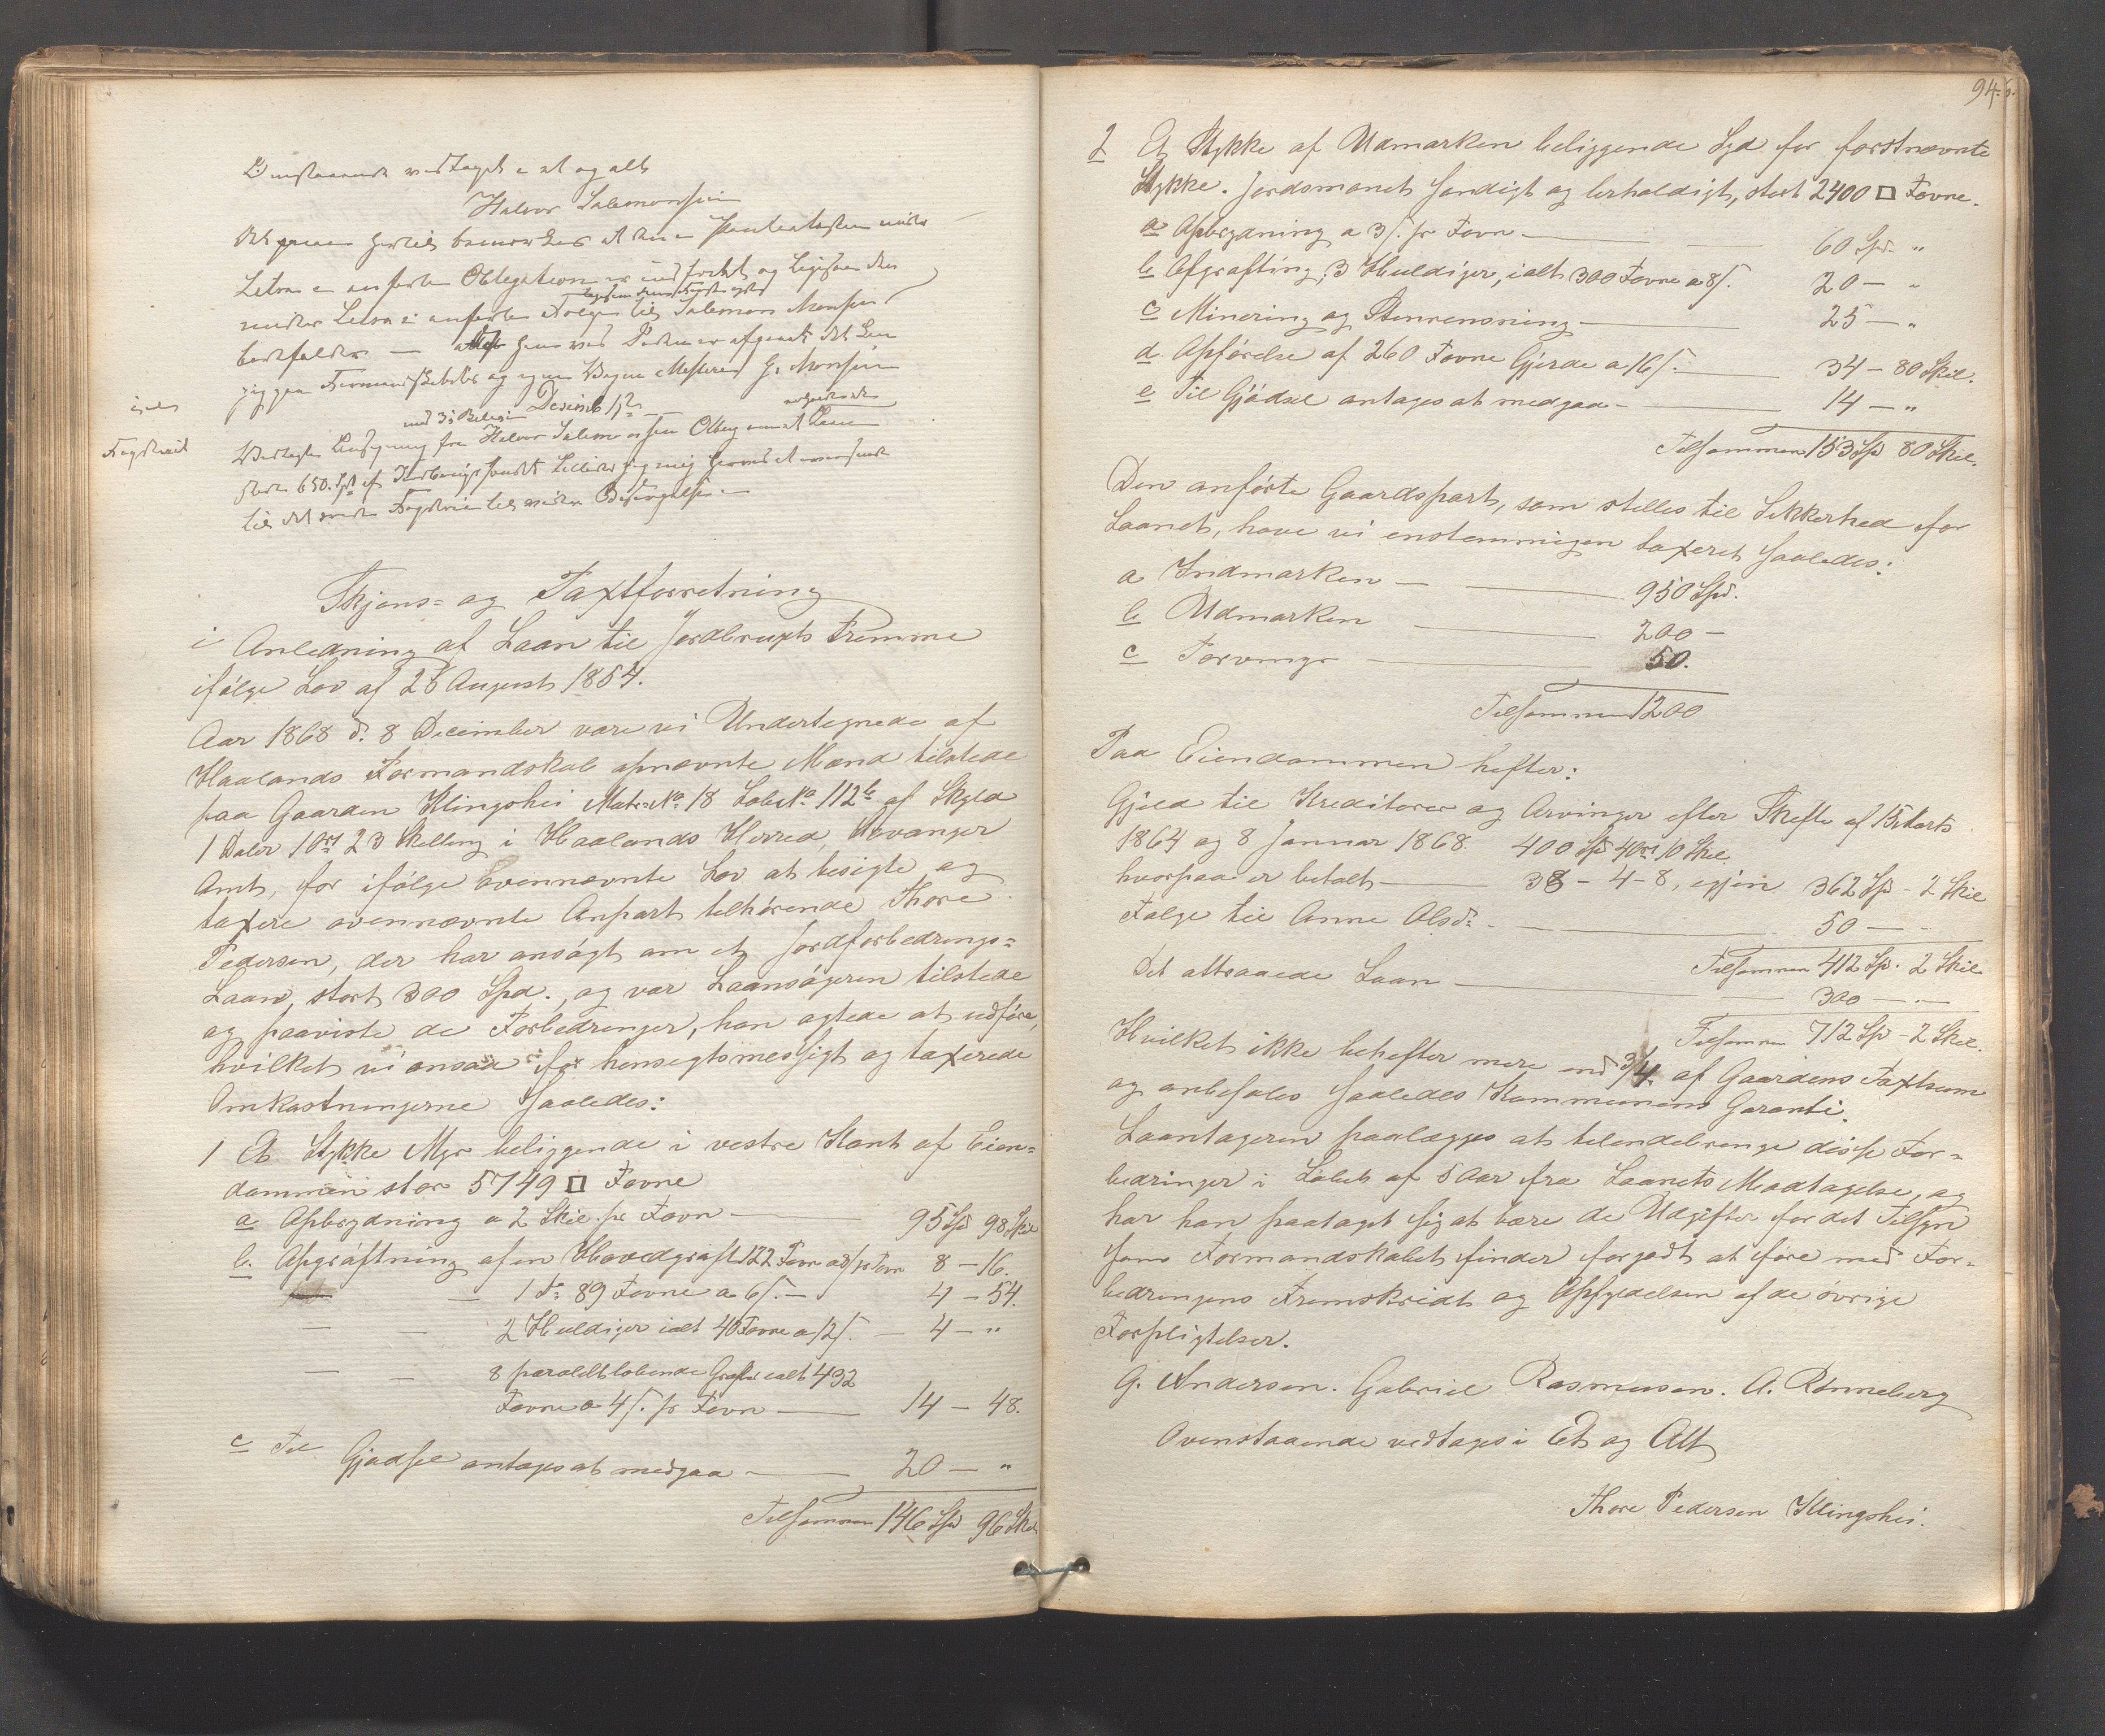 Ovenstaaende vedtages i et og alt
Halvor Salomonsen
at den Panteheftelse under
Litra a anførte Obligation er indfriet og ligesaa den
under Litra anførte Følge til Salomon Monsen
bortfalder
Formandskabet og G. Monsen
Decemb
med 3 Bilage
Fogderiet
fra Halvor Salomonsen om at Laane
stort 650 Spd af
til det Fogderie til videre Besørgelse
Skjøns= og Taxtforretning
i Anledning af Laan til Jordbrugets Fremme
ifølge Lov af 26 August 1854.
Aar 1868 d. 8 December vare vi Undertegnede af
Haalands Formandskab opnævnte Mænd tilstede
paa Gaarden Klingshei Matr: No 18 Løbe No 112b af Skyld
1 Daler 1 Ort 23 Skilling i Haalands Herred, Stavanger
Amt, for ifølge ovennævnte Lov at besigte og
taxere ovennævnte Anpart tilhørende Thore
Pedersen, der har ansøgt om et Jordforbedrings=
Laan, stort 300 Spd., og var Laansøgeren tilstede
og paaviste de Forbedringer, han agtede at udføre,
hvilket vi ansaa for hensigtsmessigt og taxerede
Omkostningerne saaledes:
1 Et Stykke Myr beliggende i vestre Kant af Eien=
dommen stor 5749 □ Favne
a Opbrydning a 2 Skil. pr Favn — 95 Spd 98 Skil
b. Opgrøftning af en Hovedgrøft 122 Favn a 8/ pr Favn 8 — 16.
— 1 Do 89 Favne a 6/. — 4 — 54.
— — 2 Huldiger ialt 40 Favne a 12/. — 4 — "
— — 8 paralelt løbende Grøfter ialt 432
Favne a 4/. pr Favn — 14 — 48.
c Til Gjødsel antages at medgaa — 20 — "
Tilsammen 146 Spd 96 Skil
94.
2 Et Stykke af Udmarken beliggende Syd for førstnævnte
Stykke. Jordsmonet sandigt og lerholdigt, stort 2400 □ Favne.
a Opbrydning a 3/. pr Favn — 60 Spd. "
b Opgrøfting, 3 Huldiger, ialt 300 Favne a 8/. 20 — "
c Minering og Stenrensning — 25 — "
d. Opførelse af 260 Favne Gjerde a 16/. — 34 — 80 Skil.
e Til Gjødsel antages at medgaa — 14 — "
Tilsammen 153 Spd 80 Skil.
Den anførte Gaardspart, som stilles til Sikkerhed for
Laanet, have vi enstemmigen taxeret saaledes:
a Indmarken — 950 Spd.
b Udmarken — 200 —
c Torvmyr — 50.
Tilsammen 1200
Paa Eiendommen hefter:
Gjeld til Kreditorer og Arvinger efter Skifte af 15 Marts
1864 og 8 Januar 1868. 400 Spd 4 Ort 10 Skil.
hvorpaa er betalt — 38 — 4 — 8, igjen 362 Spd — 2 Skil
Følge til Anne Olsdr. — 50 — "
Tilsammen 412 Spd. 2 Skil
Det attraaede Laan — 300 — "
Tilsammen 712 Spd — 2 Skil.
Hvilket ikke behefter mere end 3/4 af Gaardens Taxtsum
og anbefales saaledes Kommunens Garanti.
Laantageren paalægges at tilendebringe disse For=
bedringer i Løbet af 5 Aar fra Laanets Modtagelse, og
har han paataget sig at bære de Udgifter for det Tilsyn
som Formandskabet finder forgodt at føre med For=
bedringens Fremskridt og Opfyldelsen af de øvrige
Forpligtelser.
G. Andersen. Gabriel Rasmussen. A. Rønneberg
Ovenstaaende vedtages i Et og Alt
Thore Pedersen Klingshei.